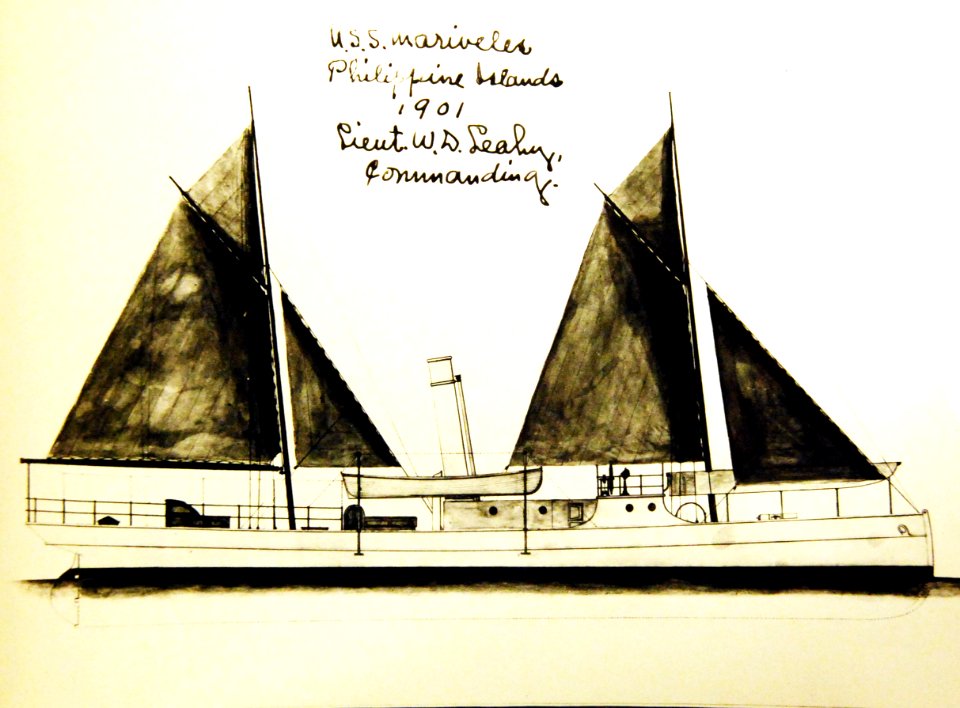 U.S.S. Mariveles
Philippine Islands
1901
Lieut. W. D. Leahy,
Commanding.